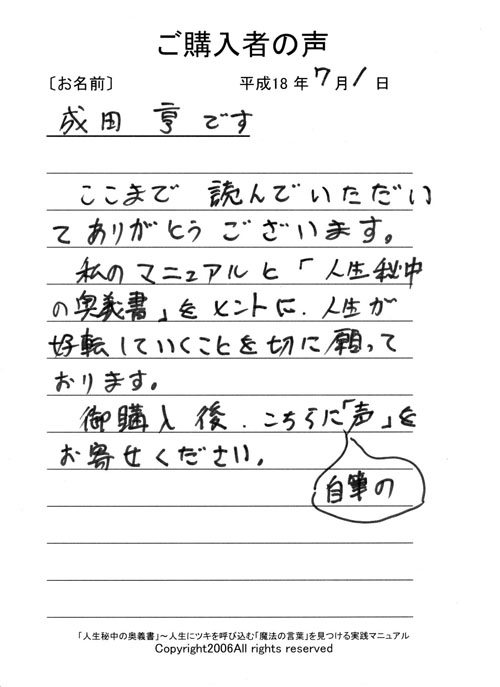 ご購入者の声
〔お名前〕 平成18年 7月 1日
成田 亨です
ここまで 読んでいただい
てありがとうございます。
私のマニュアルと「人生秘中
の奥義書」をヒントに、人生が
好転していくことを切に願って
おります。
御購入後、こちらに「声」を
お寄せください。
自筆の
「人生秘中の奥義書」～人生にツキを呼び込む「魔法の言葉」を見つける実践マニュアル
Copyright2006All rights reserved